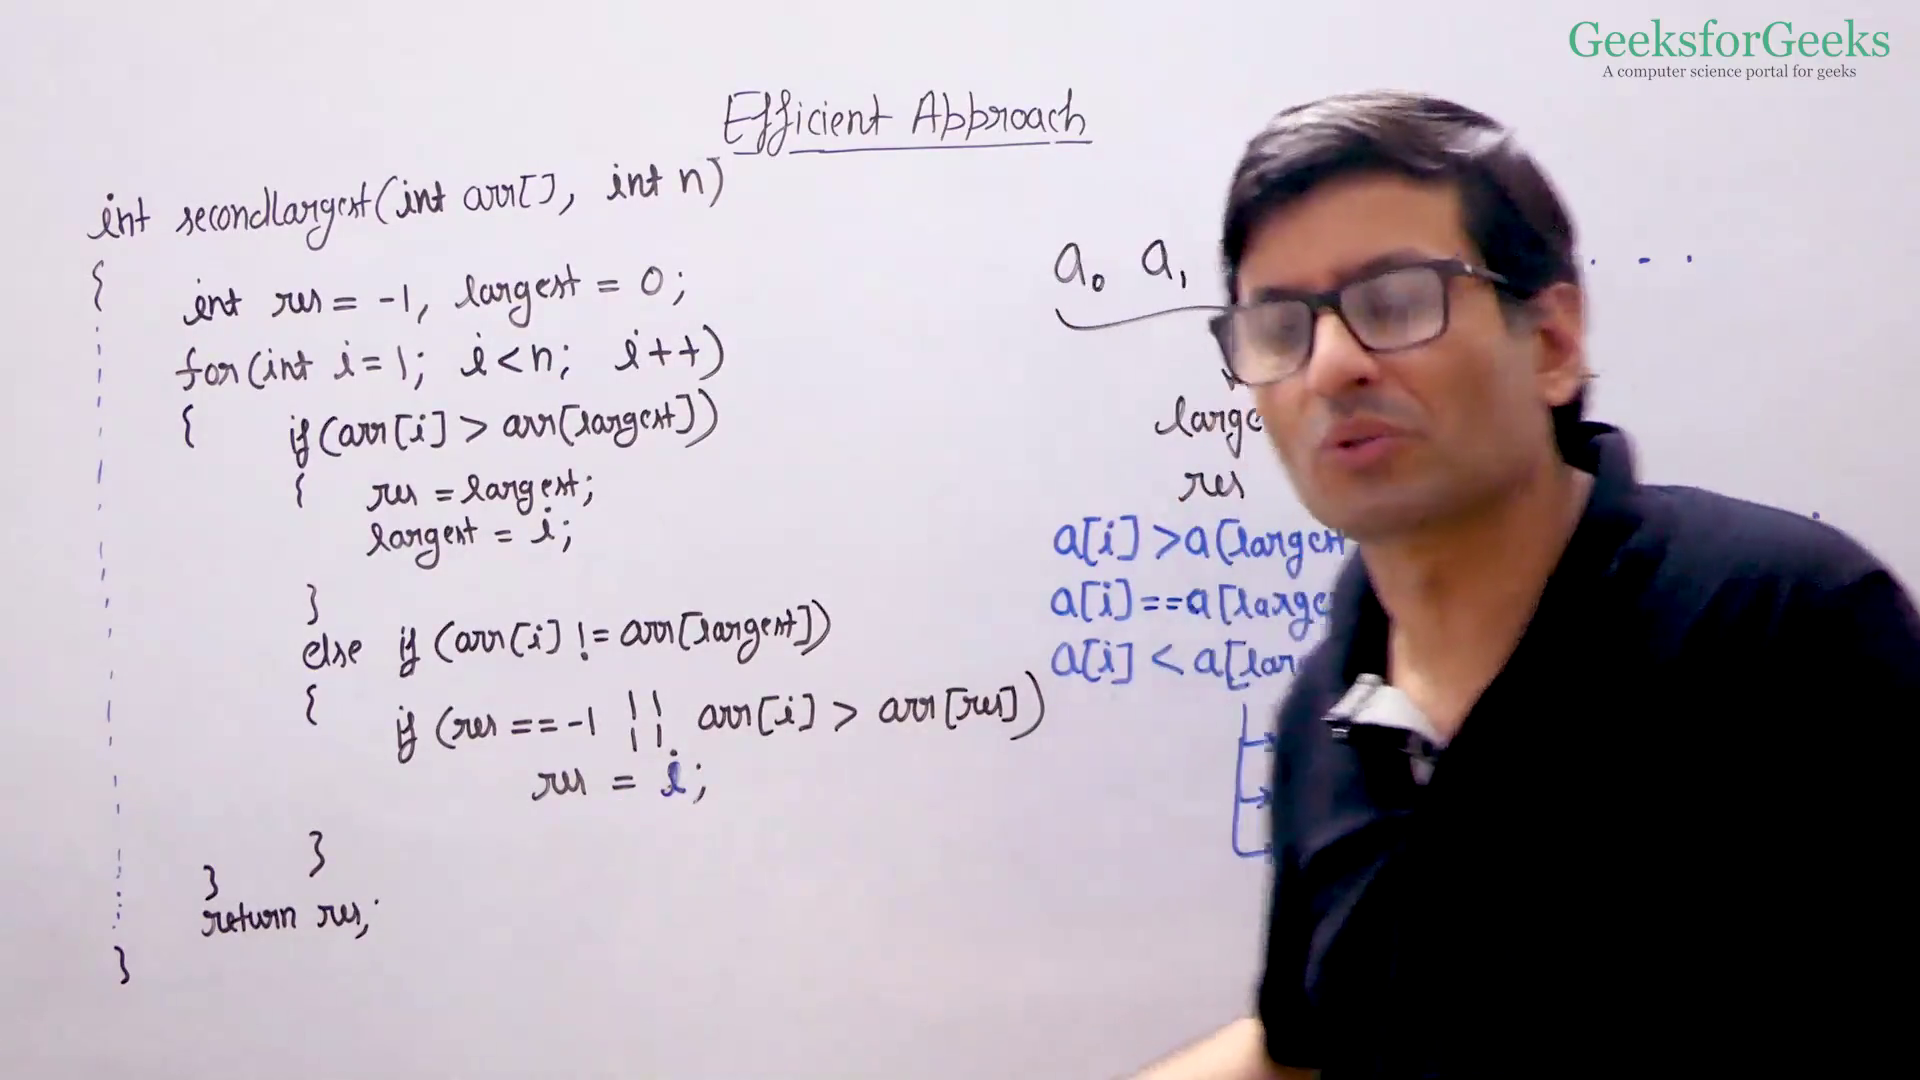 GeeksforGeeks
A computer science portal for geeks
Efficient Approach
int secondLargest(int arr[], int n)
{
int res = -1, largest = 0;
for(int i=1; i<n; i++)
{ if(arr[i] > arr[largest])
{ res = largest;
largest = i;
}
else if (arr[i] != arr[largest])
{ if (res == -1 || arr[i] > arr[res])
res = i;
}
}
return res;
}
a₀ a₁ . . .
res
a[i] > a[largest
a[i] == a[
a[i] < a[